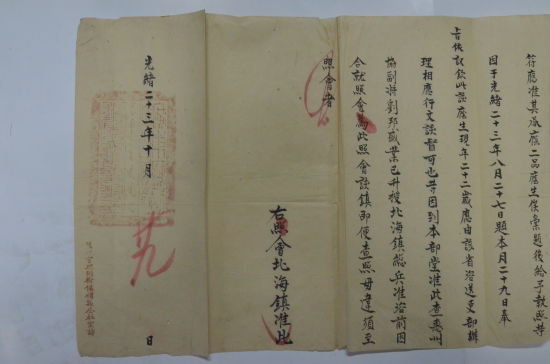 符應准其承廕二品廕生俟彙題後給予執照并
因于光緒二十三年八月二十七日題本月二十九日奉
旨依議欽此該廕生現年二十二歲應由該省咨送吏部辦
理相應行文該督可也等因到本部堂准此查惠州
協副將劉邦盛業已升授北海鎮總兵准咨前因
合就照會為此照會該鎮即便查照毋違須至
照會者
右照會北海鎮准此
光緒二十三年十月
廿九
日